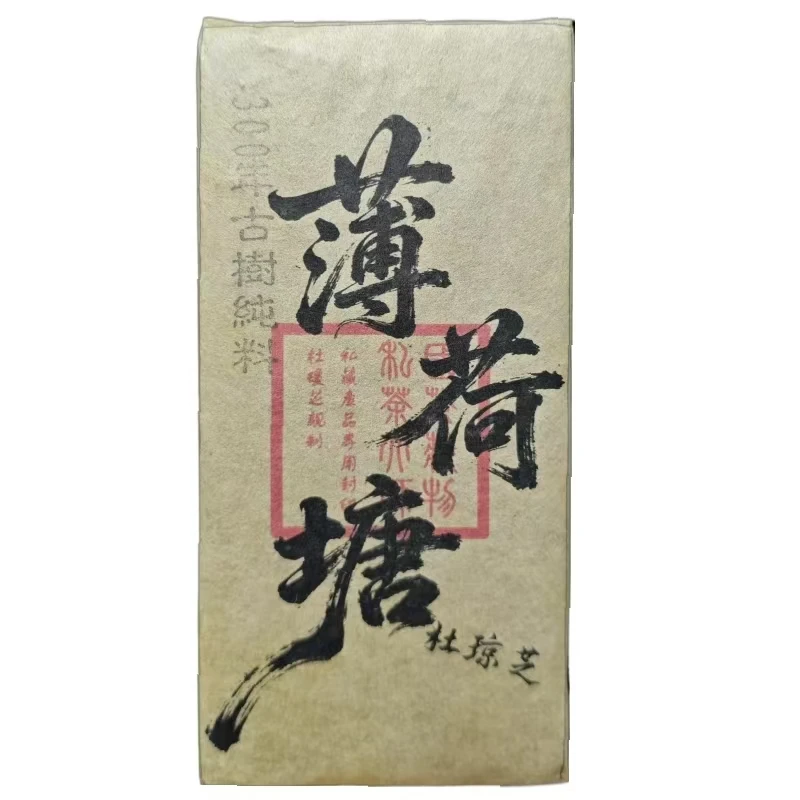 300年古樹純料
薄荷塘
私茶
私藏產品專用封印
杜琼芝親制
杜琼芝